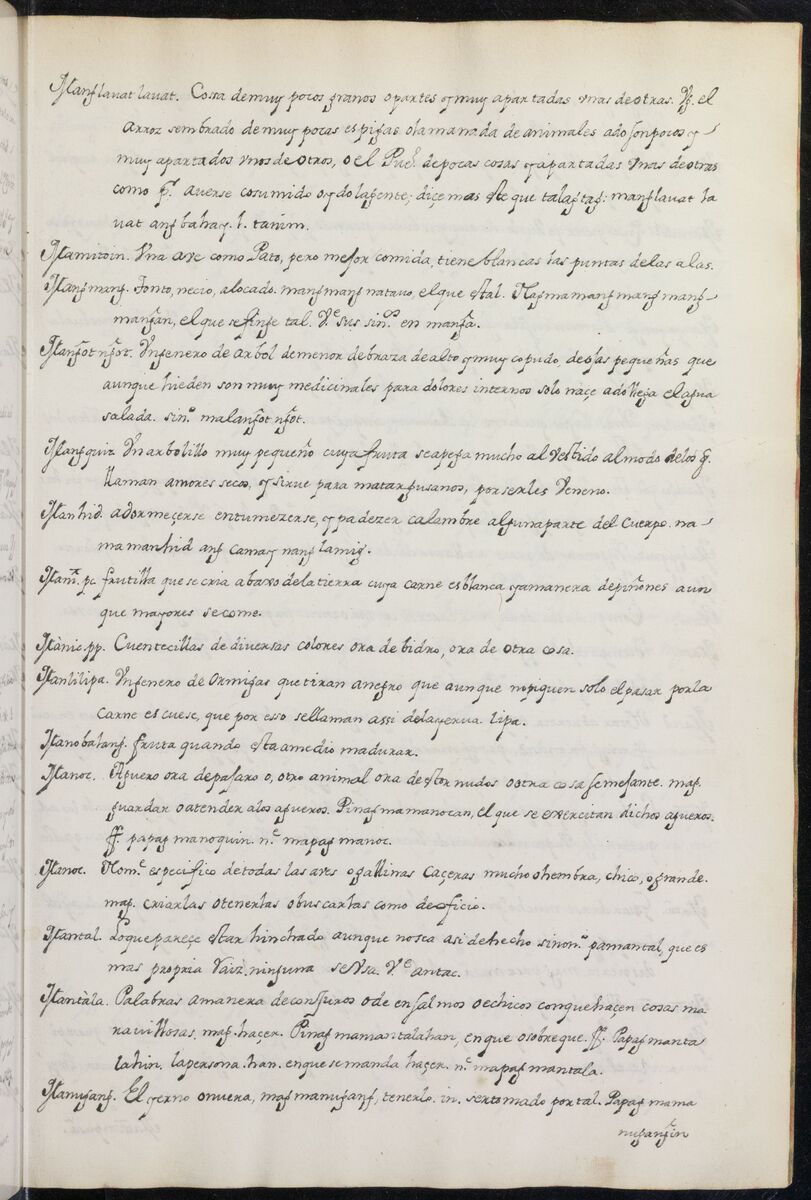 Manglavat lavat. Cossa de muy pocos granos o partes y muy apartadas vnas de otras. Vg. el
arroz sembrado de muy pocas espigas o la manada de animales ado son pocos y
muy apartados vnos de otros, o el Pueb. de pocas cosas y apartadas vnas de otras
como pr. averse cosumido oydo la gente; diçe mas este que talagtag: manglavat la
vat ang bahay. l. tanim.
Mamitoin. Vna ave como Pato, pero mejor comida, tiene blancas las puntas de las alas.
Mangmang. Tonto, necio, alocado. mangmang na tauo, el que es tal. Nagmamangmang mang-
mangan, el que se finge tal. Ve. sus sin.os en manga.
Mangotngot. Vn genero de arbol de menor de braza de alto y muy copudo, de ojas pequeñas que
aunque hieden son muy medicinales para dolores internos solo naçe ado llega el agua
salada. sin.o malangotngot.
Manguit. Vn arbolillo muy pequeño cuya fruta se apega mucho al vestido al modo de los q.
llaman amores secos, y sirue para matar gusanos, por serles veneno.
Manhid. adormeçerse entumezerse, y padezer calambre alguna parte del cuerpo. na-
mamanhid ang camay nang lamig.
Mani. pc. frutilla que se cria abaxo de la tierra cuya carne es blanca y a manera de piñones aun
que mayores se come.
Mànic. pp. Cuentecillas de diversas colores ora de bidro, ora de otra cosa.
Manlilipa. Vn genero de Ormigas que tiran a negro que aunque no piquen solo el pasar por la
carne escuese, que por esso se llaman assi de la yerua. lipa.
Manobalang. fruta quando esta a medio madurar.
Manoc. Aguero ora de pajaro o, otro animal ora de estornudos o otra cosa semejante. mag.
guardar o atender a los agueros. Pinagmamanocan, el que se exercitan dichos agueros.
ff. papagmanoquin. n.c mapagmanoc.
Manoc. Nom.e especifico de todas las aves o gallinas caçeras mucho o hembra, chico, o grande.
mag. criarlas o tenerlas o buscarlas como de oficio.
Mantal. Lo que pareçe estar hinchado aunque no sea asi de hecho sinon.o pamantal, que es
mas propria Raiz. ninguna se vsa. Ve. antac.
Mantàla. Palabras a manera de conjuros o de ensalmos o echicos con que haçen cosas ma
ravillosas, mag. haçer. Pinagmamantalahan, en que o sobre que. ff. Papagmanta
lahin. la persona. han. en que se manda haçer. n.c mapagmantala.
Manugang. El yerno o nuera, magmanugang, tenerlo. in. ser tomado por tal. Papagmama
nugangin